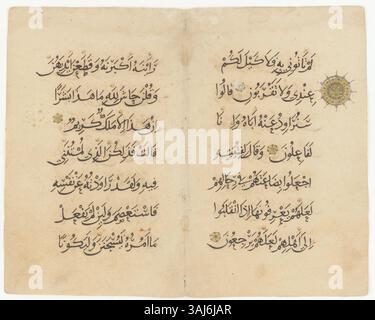 لم تأتوني به فلا كيل لكم
عندي ولا تقربون قالوا
سنراود عنه أباه وإنا
لفاعلون وقال لفتيته
اجعلوا بضاعتهم في رحالهم
لعلهم يعرفونها إذا انقلبوا
إلى أهلهم لعلهم يرجعون
رأينه أكبرنه وقطعن أيديهن
وقلن حاش لله ما هذا بشرا
إن هذا إلا ملك كريم
قالت فذلكن الذي لمتنني
فيه ولقد راودته عن نفسه
فاستعصم ولئن لم يفعل
ما آمره ليسجنن وليكونا
alamy
Image ID: 3AJ6JAR
www.alamy.com